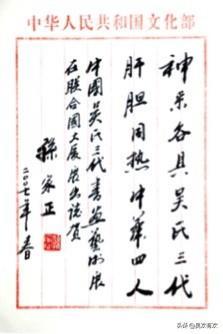 中华人民共和国文化部
神采各具吴氏三代
肝胆同热中华四人
中国吴氏三代书画艺术展
在联合国大厦展出誌贺
孫家正
二〇〇七年春